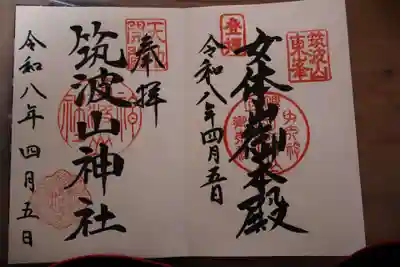 筑波山
東峯
登拝
女体山御本殿
令和八年四月五日
奉拝
筑波山神社
令和八年四月五日